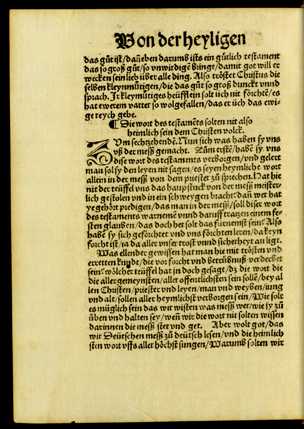 Von der heyligen
das gůt ist/ dañ eben darumb ists ein gůtlich testament
das so groß gůt/ so vnwirdigē bringt/ damit got will er
wecken sein lieb über alle ding. Also tröstet Christus die
selben kleynmůtigen/ die das gůt so groß dunckt vnnd
sprach. Ir kleymůtiges heüfflein solt üch nit förchtē/ es
hat üwerem vatter so wolgefallen/ das er üch das ewi-
ge reych gebe.
Die wort des testamēts sollen nit also
heimlich sein dem Christen volck.
ZVm sechtzehendē. Nun sich was haben sy vns
vß der meß gemacht. Zům erstē/ habē sy vns
dise wort des testaments verborgen/ vnd gelert
man sol sy den leyen nit sagen/ es seyen heymlicht wort
allein in der meß von dem priester zů sprechen. Hat hie
nit der tüffel vns das haupstuck von der meß meister-
lich gestolen vnd in ein schweygen bracht/ dañ wer hat
ye gehört predigen/ das man in der meß/ soll diser wort
des testaments warnemē vnnd daruff tratzen einem fe-
sten glauben/ das doch het solt das fürnemst sein? Also
habē sy sich geförchtet vnd vns förchten lerē/ da keyn
forcht ist/ ja da aller vnser trost vnnd sicherheyt an ligt.
Was ellender gewissen hat man hie mit trösten vnd
errettē kündē/ die vor forcht vnd betrůbnuß verderbet
sein? wölcher teüffel hat in doch gesagt/ dz die wort die
die aller gemeynsten/ aller offentlichsten sein sollē/ bey al
len Christen/ priester vnd leyen/ man vnd weyben/ iung
vnd alt/ sollen aller heymlichst verborgen sein/ Wie solt
es müglich sein das wir wisten was meß wer/ wie sy zů
üben vnd halten sey/ wēn wir die wort nit solten wissen
darinnen die meß stet vnd get. Aber wolt got/ das
wir Deütschen meß zů deütsch lesen/ vnd die heimlich
sten wort vffs aller höchst sungen/ Warumb solten wir